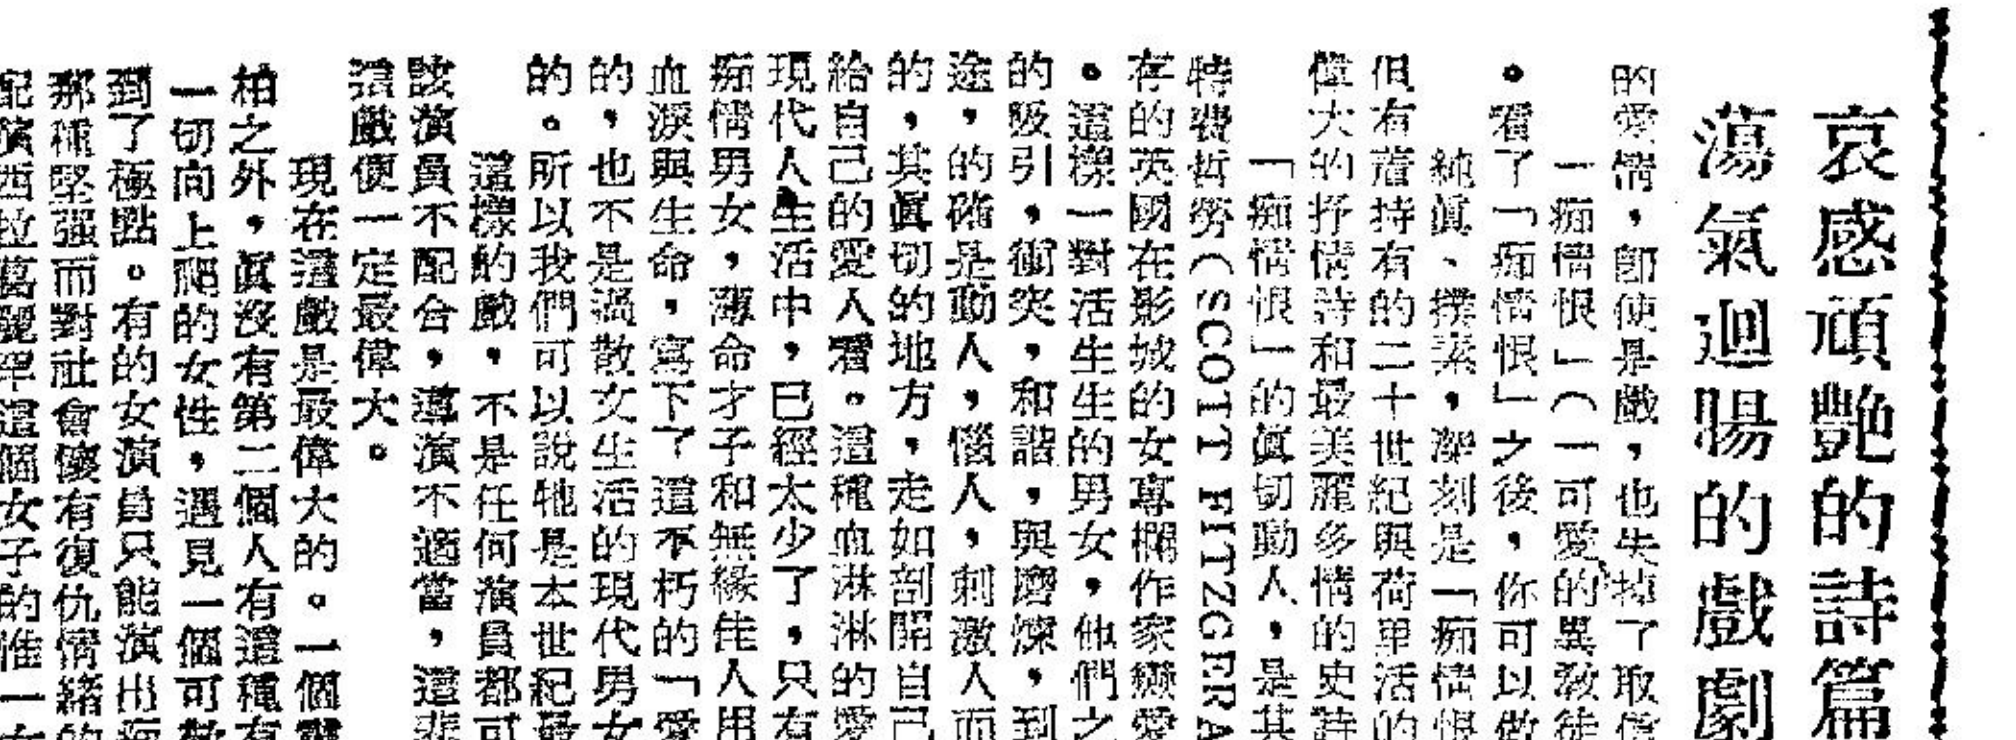 哀感頑艶的詩篇
蕩氣迴腸的戲劇
的愛情，卽使是戲，也失掉了取信
一痴情恨」（一可愛的異敎徒
。看了「痴情恨」之後，你可以做
純眞、樸素，深刻是「痴情恨
但有舊持有的二十世紀與荷里活的
偉大的抒情詩和最美麗多情的史詩
「痴情恨」的眞切動人，是其
特費哲勞（SCOTT FITZGERA
存的英國在影城的女專欄作家戀愛
。這樣一對活生生的男女，他們之
的吸引，衝突，和諧，與磨煉，到
途，的確是動人，惱人，刺激人而
的，其眞切的地方，走如剖開自己
給自己的愛人看。這種血淋淋的愛
現代人生活中，已經太少了，只有
痴情男女，薄命才子和無緣佳人用
血淚與生命，寫下了這不朽的「愛
的，也不是過散文生活的現代男女
的。所以我們可以說牠是本世紀最
這樣的戲，不是任何演員都可
該演員不配合，導演不適當，這悲
這戲便一定最偉大。
現在這戲是最偉大的。一個
柏之外，眞沒有第二個人有這種有
一切向上爬的女性，遇見一個可敎
到了極點。有的女演員只能演出
那種堅强而對社會懷有復仇情緖的
配演西拉葛麗罕這個女子的惟一女